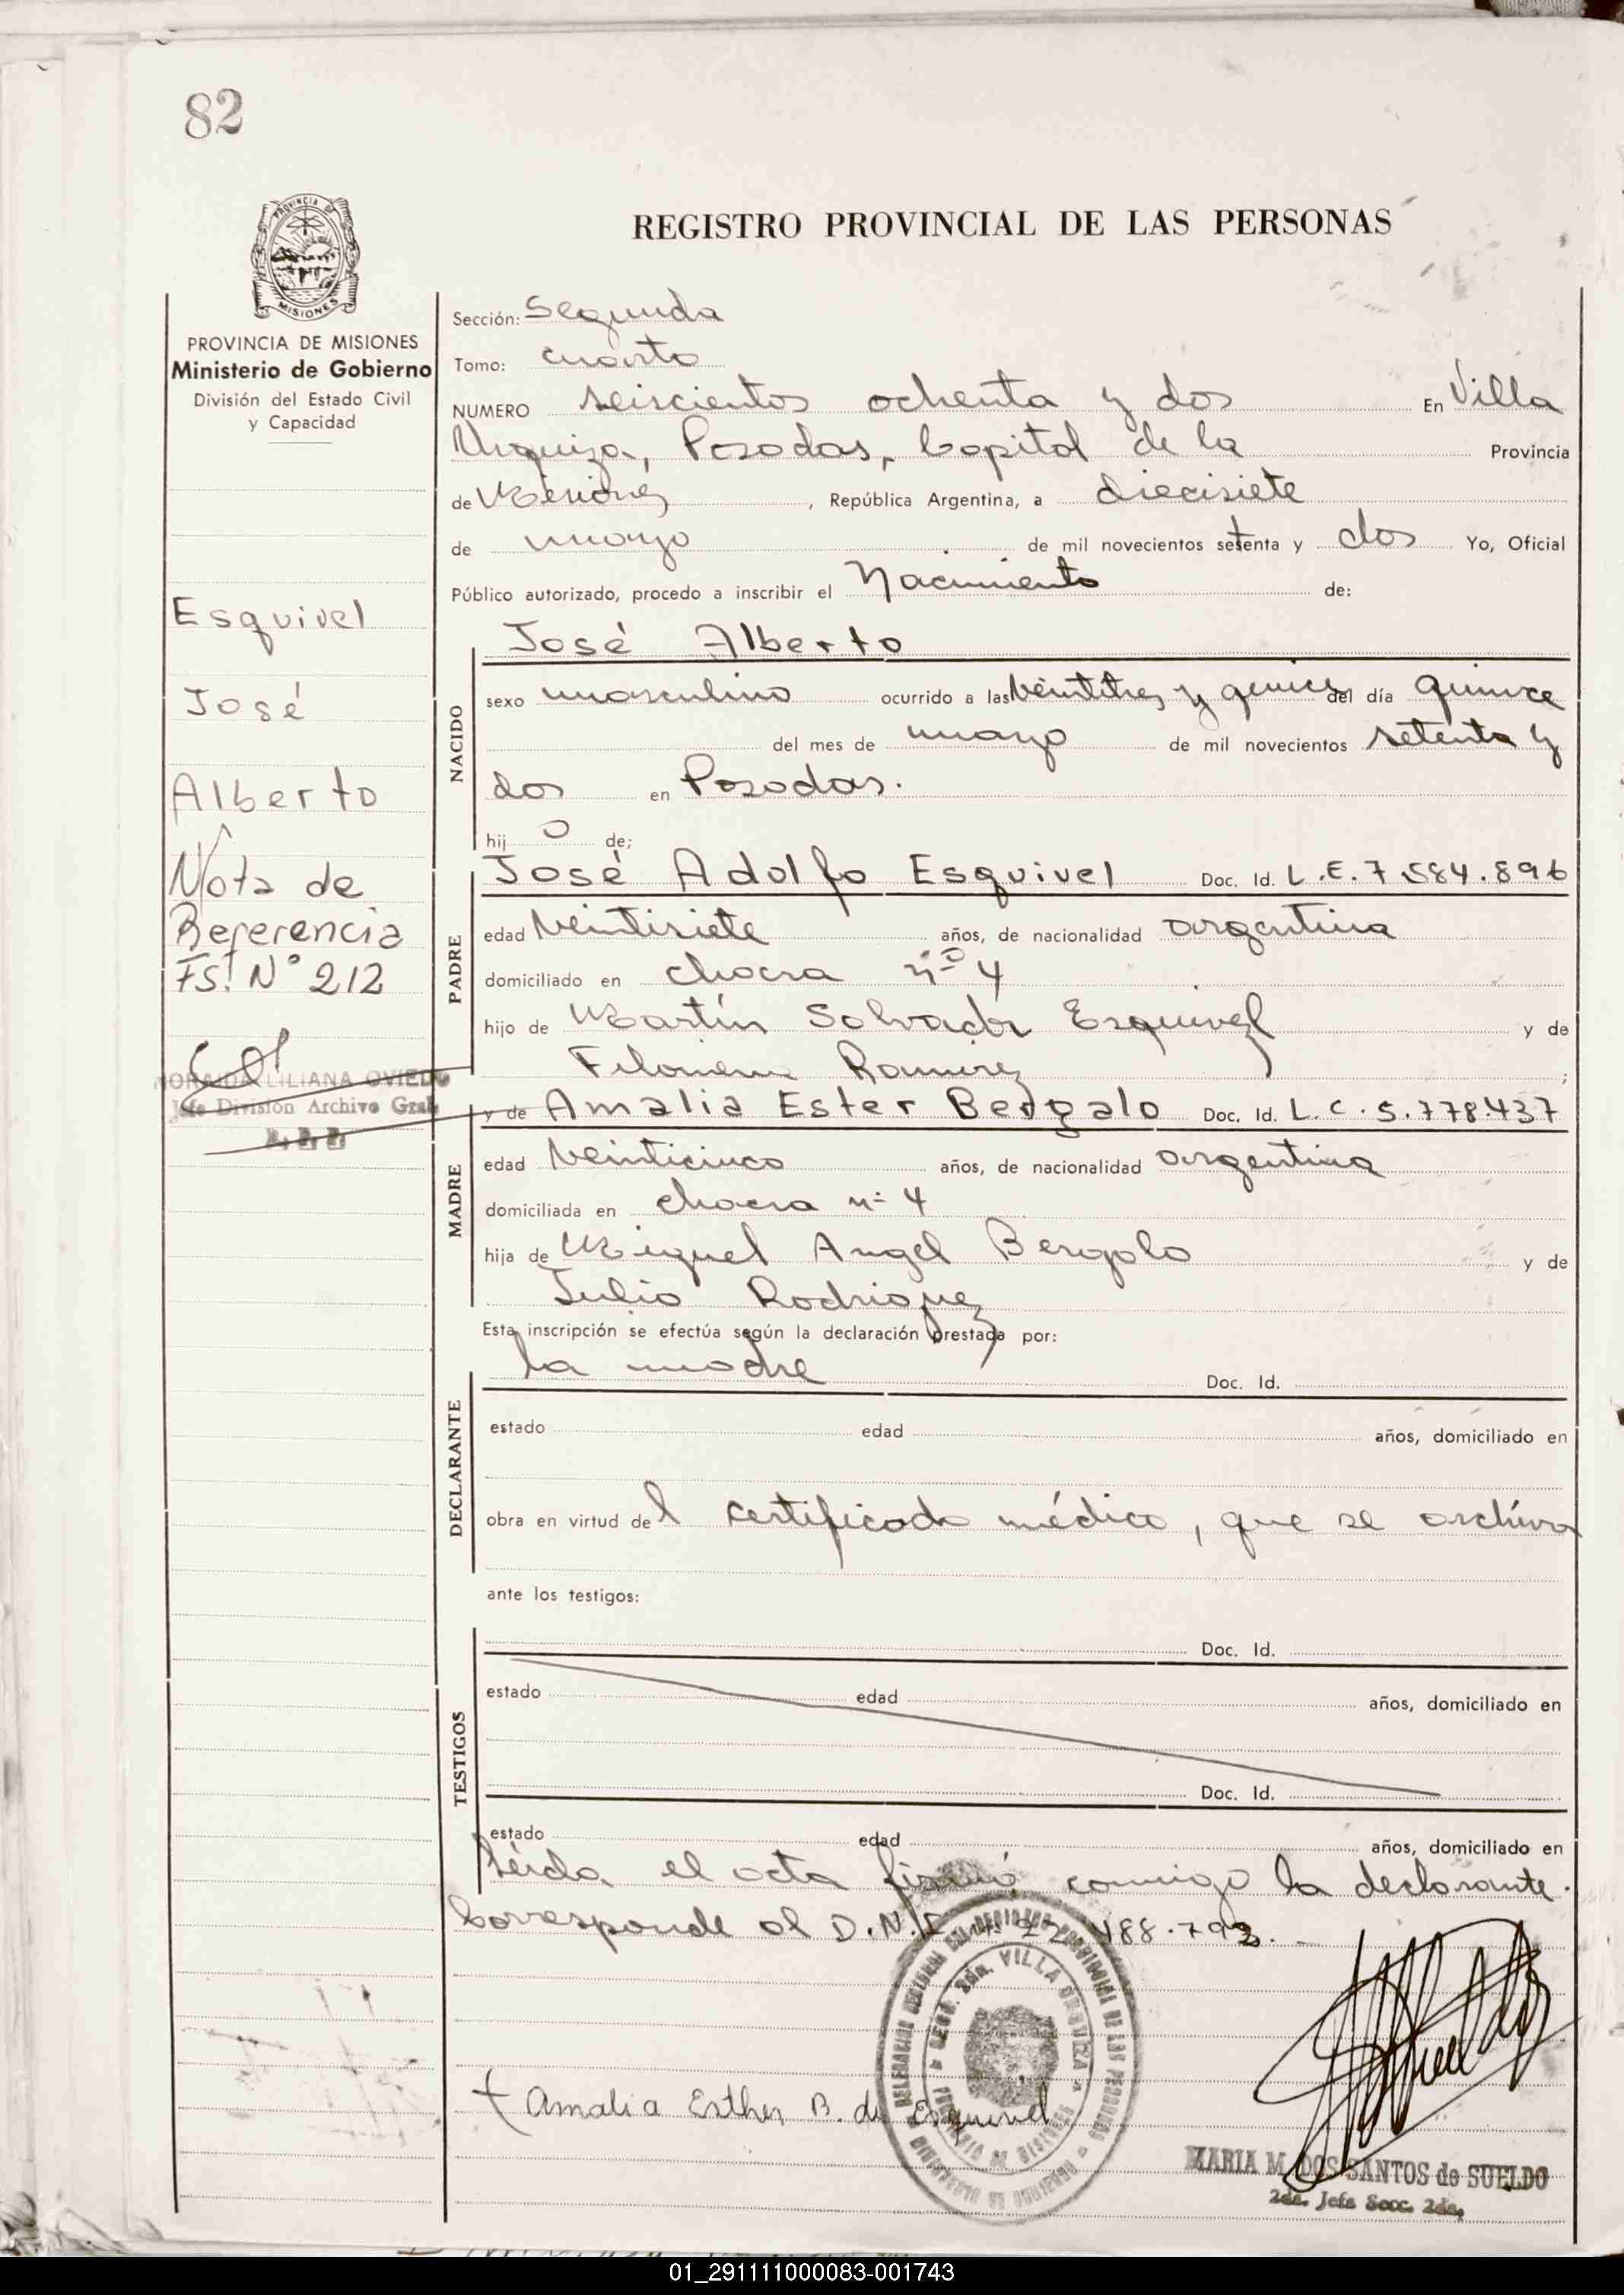 82
PROVINCIA DE
MISIONES
REGISTRO PROVINCIAL DE LAS PERSONAS
PROVINCIA DE MISIONES
Ministerio de Gobierno
División del Estado Civil
y Capacidad
Esquivel
José
Alberto
Nota de
Referencia
Fs! N° 212
LILIANA OVIEDO
Jefe División Archivo Gral
Sección: Segunda
Tomo: cuarto
NUMERO seiscientos ochenta y dos En Villa
Urquiza, Posadas, Capital de la Provincia
de Misiones, República Argentina, a diecisiete
de marzo de mil novecientos setenta y dos Yo, Oficial
Público autorizado, procedo a inscribir el Nacimiento de:
NACIDO
José Alberto
sexo masculino ocurrido a las veintitres y quince del día quince
del mes de marzo de mil novecientos setenta y
dos en Posadas.
hij o de;
PADRE
José Adolfo Esquivel Doc. Id. L.E. 7.584.896
edad veintisiete años, de nacionalidad argentina
domiciliado en chacra nº 4
hijo de Martín Salvador Esquivel y de
Filomena Ramirez ;
MADRE
y de Amalia Ester Bergalo Doc. Id. L.C. 5.778.437
edad veinticinco años, de nacionalidad argentina
domiciliada en chacra nº 4
hija de Miguel Angel Bergalo y de
Julia Rodriguez
Esta inscripción se efectúa según la declaración prestada por:
DECLARANTE
la madre Doc. Id.
estado edad años, domiciliado en
obra en virtud del certificado médico, que se archiva
ante los testigos:
TESTIGOS
Doc. Id.
estado edad años, domiciliado en
Doc. Id.
estado edad años, domiciliado en
Leida el acta firmó conmigo la declarante.
Corresponde al D.N.I. nº 22.488.793.-
SECC. 2da. VILLA URQUIZA
PROVINCIA DE MISIONES
Amalia Esther B. de Esquivel
MARIA M. DOS SANTOS de SUELDO
2da. Jefa Secc. 2da.
01_291111000083-001743